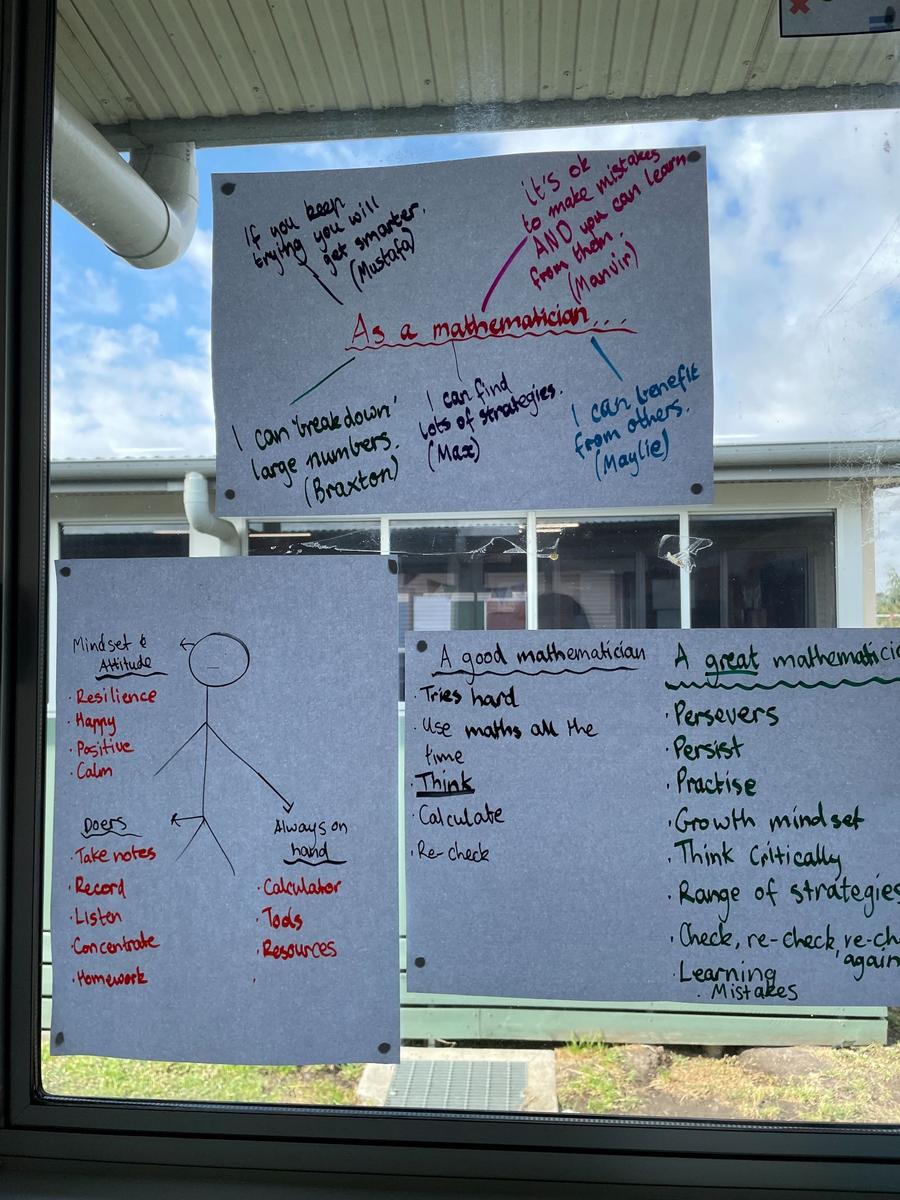 If you keep
trying you will
get smarter.
(Mustafa)
it's ok
to make mistakes
AND you can learn
from them.
(Manvir)
As a mathematician...
I can 'breakdown'
large numbers.
(Braxton)
I can find
lots of strategies.
(Max)
I can benefit
from others.
(Maylie)
Mindset &
Attitude
· Resilience
· Happy
· Positive
· Calm
Doers
· Take notes
· Record
· Listen
· Concentrate
· Homework
Always on
hand
· Calculator
· Tools
· Resources
·
A good mathematician
· Tries hard
· Use maths all the
time
· Think
· Calculate
· Re-check
A great mathematic
· Persevers
· Persist
· Practise
· Growth mindset
· Think Critically
· Range of strategies
· Check, re-check, re-ch
again
· Learning
· Mistakes